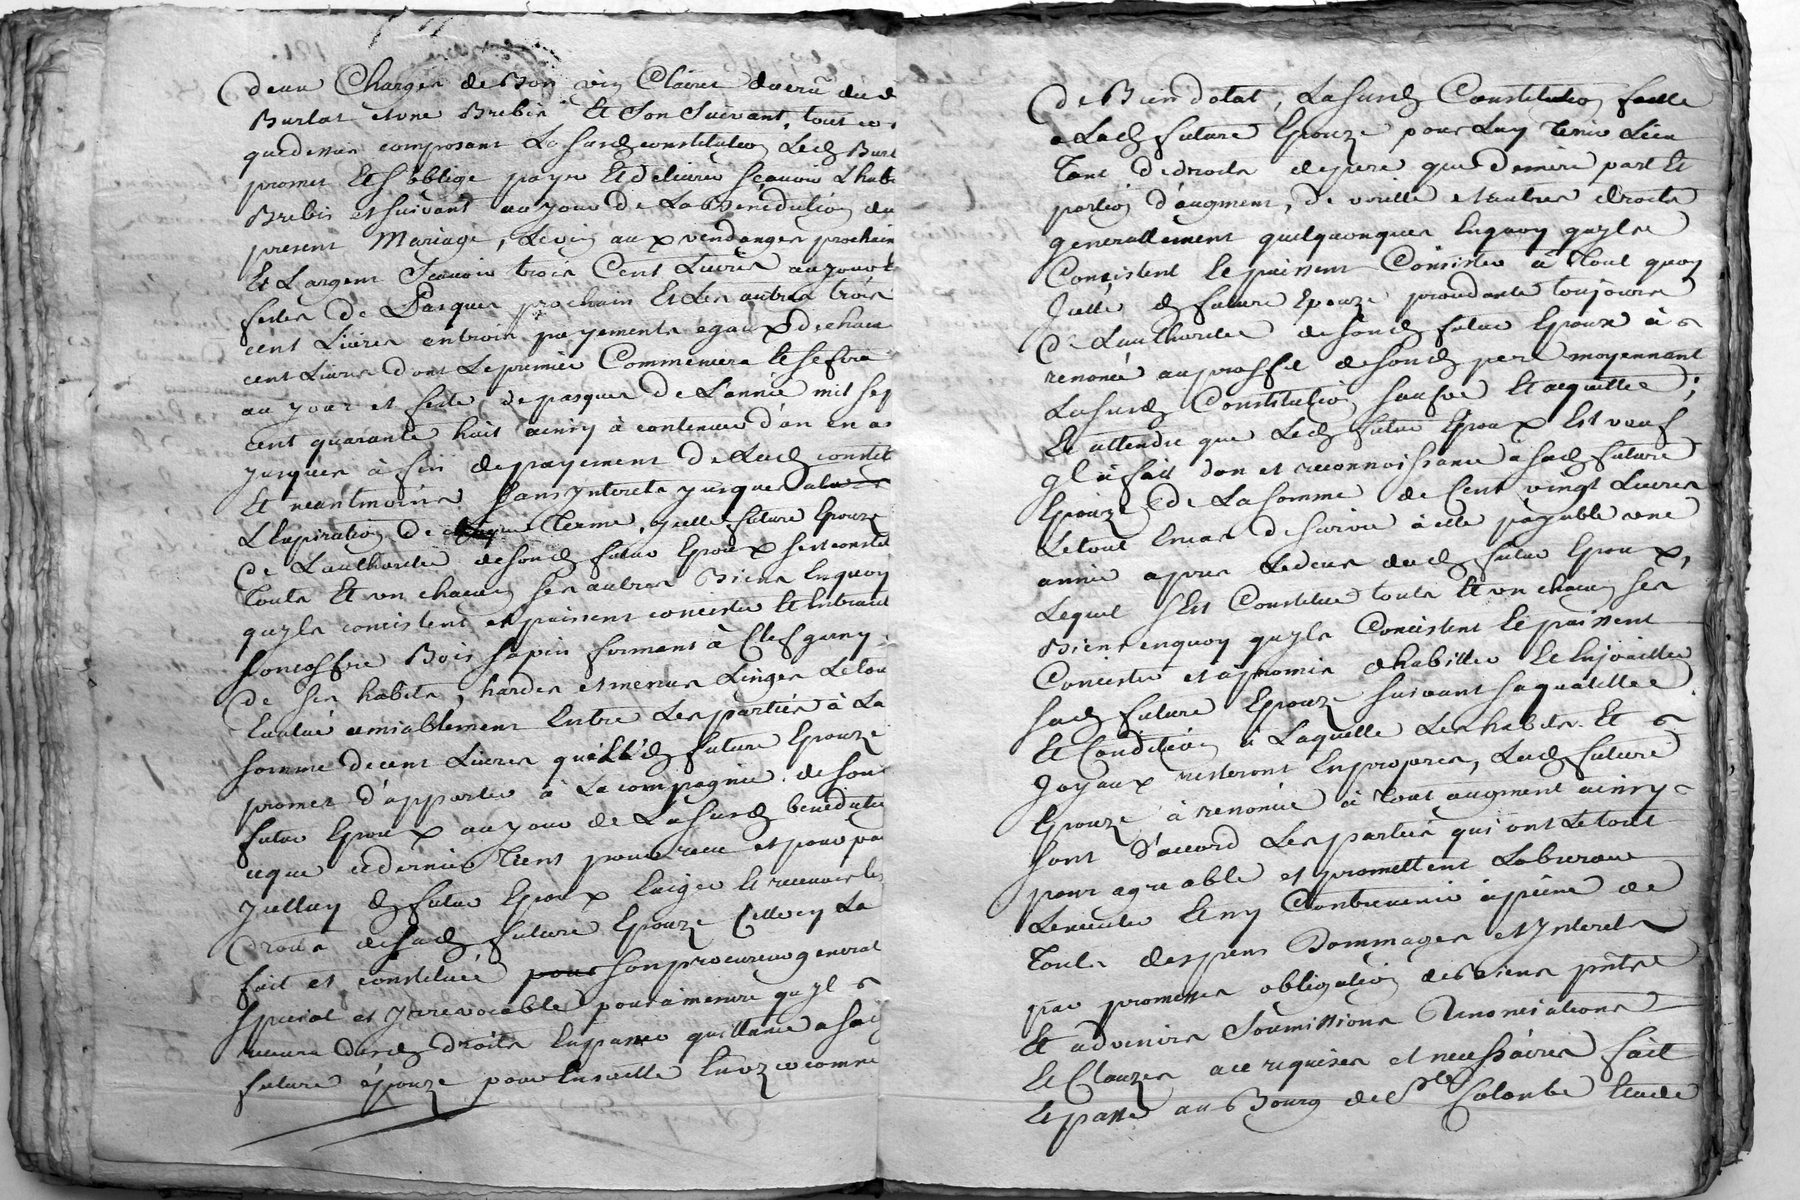 deux Charges de Bon vin Clairet du crû du d
Burlat et une Brebis Et Son Suivant, tout ce
que dessus composant La susd constitution Led Burl
promet Et S'oblige payer Et delivrer Sçavoir L'hab
Brebis et suivant au jour de La Bénédiction du
present Mariage, Le vin aux vendanges prochain
Et L'argent Sçavoir trois Cent Livres au jour &
festes de Pasques prochain Et Les autres trois
cent Livres en trois payements egaux de chacu
cent Livres dont Le premier Commencera Et Se fera
au jour et feste de pasques de L'année mil sep
cent quarante huit ainsy à continuer d'an en a
jusques à fin de payement De Lad constit
Et neantmoins Sans Interets jusques
L'Expiration de chaque Terme, yselle future Epouze
De L'authorité de Sond futur Epoux S'est constit
Touts Et un chacun Ses autres Biens En quoy
qu'yls concistent et puissent concister Et Entre aut
Son coffre Bois Sapin fermant à Clef garny
De Ses habits, hardes et menus Linges Le tou
Evalué amiablement Entre Les parties à La
Somme de cent Livres que Lad future Epouze
promet d'apporter à La compagnie de Son
futur Epoux au jour de La Susd benedictio
ce que ce dernier Tient pour reçu et pour pa
Icelluy d futur Epoux Exiger Et recevoir les
Droits de Sad future Epouze Celle cy La
fait et constitué pour Son procureur general
Special et Irrevocable pour à mesure qu'yl
recevra Lesd droits En passer quittance a Sad
future épouze pour Ensuitte En vzer comme
De Bien dotal, La Susd Constitution faitte
a Lad future Epouze pour Luy Tenir Lieu
Tant de droits de pere que de mere part Et
portion d'augment, De voille et autres droits
generallement quelquonques En quoy qu'yls
Concistent Et puissent Concister à Tout quoy
Icelle d future Epouze procedante toujours
De L'authorité de Sond futur Epoux à
renoncé au proffit de Sond pere moyennant
La Susd Constitution Sauve Et acquittée ;
Et attendu que Led futur Epoux Est veuf
yl à fait don et reconnoissance à Sad future
Epouze De La Somme de Cent vingt Livres
Le tout En cas de Survie à elle payable une
année apres Le deces dud futur Epoux,
Lequel S'Est Constitué touts Et un chacun Ses
Biens en quoy qu'yls Concistent Et puissent
Concister et a promis d'habiller Et Enjoailler
Sad future Epouze Suivant Sa qualittée
Et Condition à Laquelle Les habits Et
Joyaux resteront En propres, Lad future
Epouze à renoncé à Tout augment ainsy
Sont D'accord Les parties qui ont Le tout
pour agreable et promettent L'observer
L'executer Et n'y Contrevenir à peine de
Touts despens Dommages et Interets
par promesses obligation de Biens pnts
Et advenirs Soumissions Renonciations
Et Clauzes a ce requises et necessaires fait
Et passé au Bourg de Ste Colombe Etude